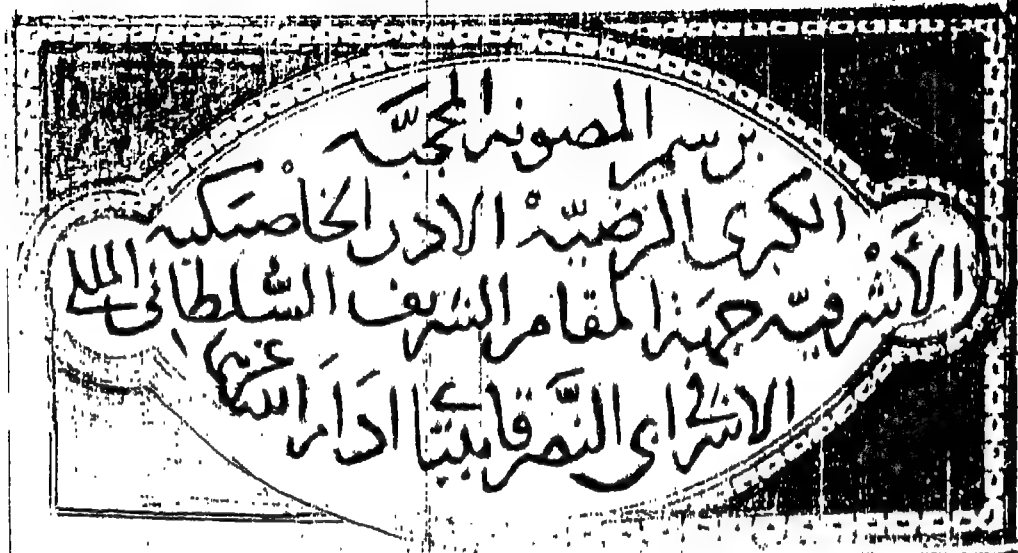 برسم المصونه المحجبَّه
الكبرى الرضيّة الادر الخاصَكيه
الأشرفيّه جهة المقام الشريف السُّلطانى الملكى
الاشرفى ابى النَّصر قايتباى ادَامَ الله عزها